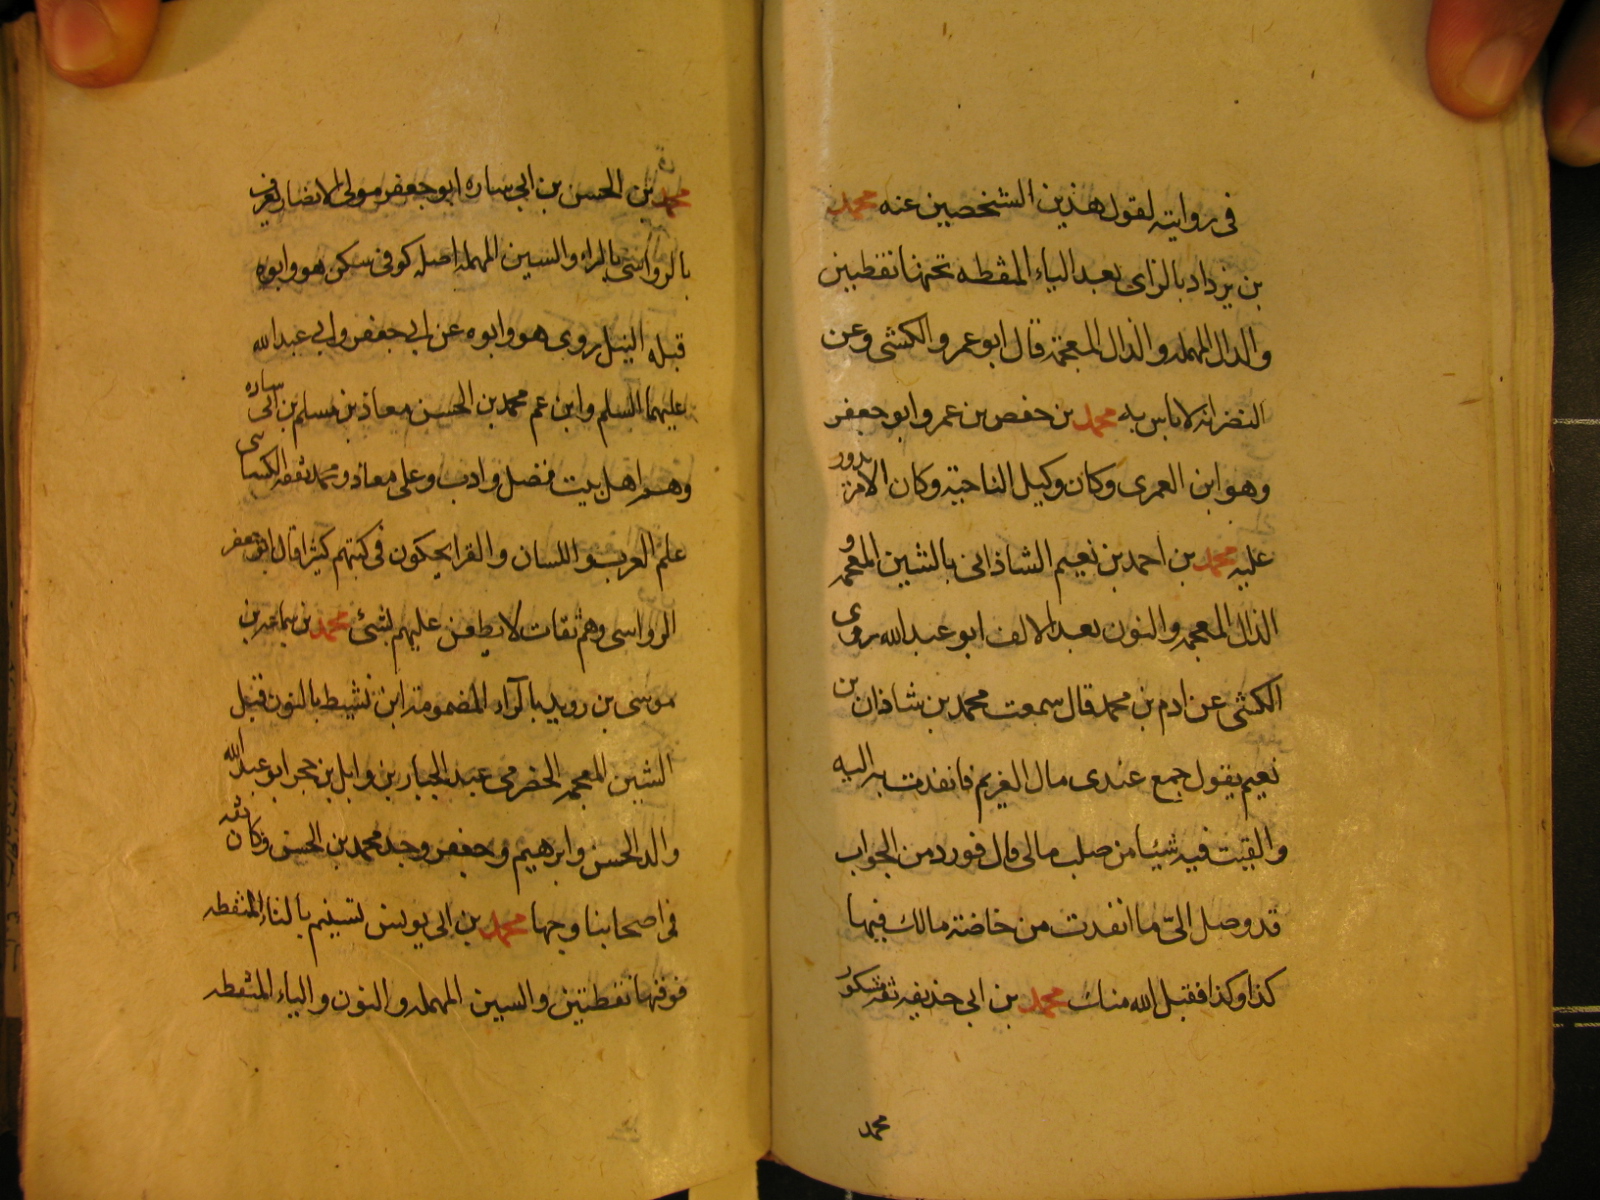 فى روايته لقول هذين الشخصين عنه محمد
بن يزداد بالزاى بعد الياء المنقطه تحتها نقطتين
والدال المهمله والذال المعجمة قال ابو عمرو الكشى وعن
النضر انه لا باس به محمد بن حفص بن عمرو ابو جعفر
وهو ابن العمرى وكان وكيل الناحية وكان الامر يدور
عليه محمد بن احمد بن نعيم الشاذانى بالشين المعجمه و
الذال المعجمه والنون بعد الالف ابو عبد الله روى
الكشى عن ادم بن محمد قال سمعت محمد بن شاذان بن
نعيم يقول جمع عندى مال الغريم فانفدت به اليه
والقيت فيه شيئا من صلب مالى قال فورد من الجواب
قد وصل الىّ ما انفدت من خاصة مالك فيها
كذا وكذا فقبل الله منك محمد بن ابى حذيفه ثقه مشكور
محمد
محمد بن الحسن بن ابى ساره ابو جعفر مولى الانصار يعرف
بالرواسى بالراء والسين المهمله اصله كوفى سكن هو وابوه
قبله النيل روى هو وابوه عن ابى جعفر وابى عبد الله
عليهما السلم وابن عم محمد بن الحسن معاذ بن مسلم بن ابى ساره
وهم اهل بيت فضل وادب وعلى معاذ ومحمد ثقفه الكسائى
علم العرب واللسان والقرا يحكون فى كتبهم كثيرا قال ابو جعفر
الرواسى وهم ثقات لا يطعن عليهم بشئ محمد بن سماعه بن
موسى بن رويد بالراء المضمومة ابن نشيط بالنون قبل
الشين المعجمه الحضرمى عبد الجبار بن وابل بن حجر ابو عبد الله
والد الحسن وابرهيم وجعفر وجد محمد بن الحسن وكان ثقه
فى اصحابنا وجها محمد بن ابى يونس تسنيم بالتاء المنقطه
فوقها نقطتين والسين المهمله والنون والياء المنقطه